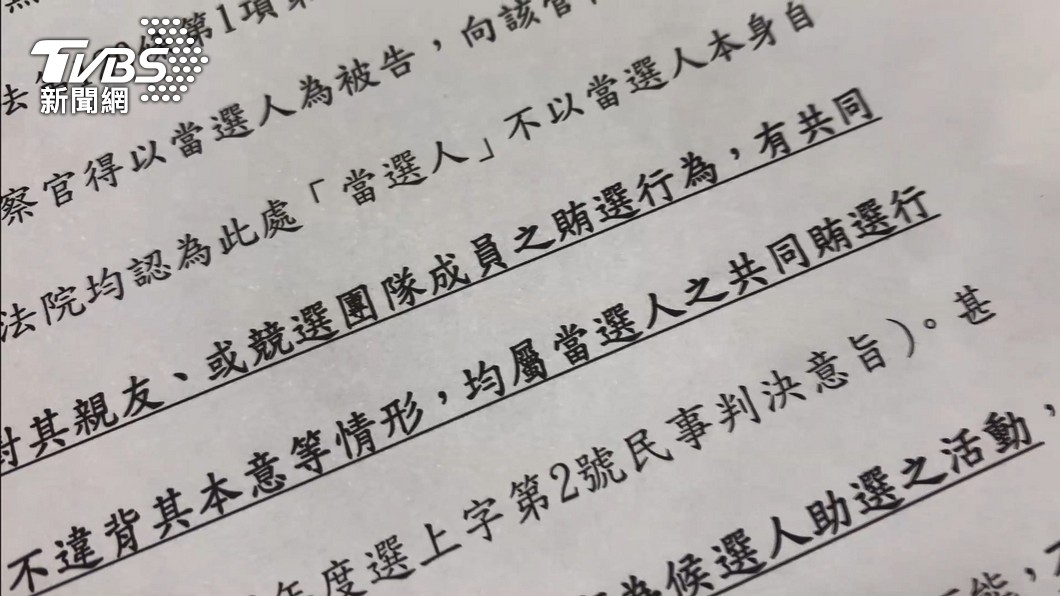 TVBS
新聞網
第1項
察官得以當選人為被告，向該管
法院均認為此處「當選人」不以當選人本身自
對其親友、或競選團隊成員之賄選行為，有共同
不違背其本意等情形，均屬當選人之共同賄選行
年度選上字第2號民事判決意旨）。甚
為候選人助選之活動，